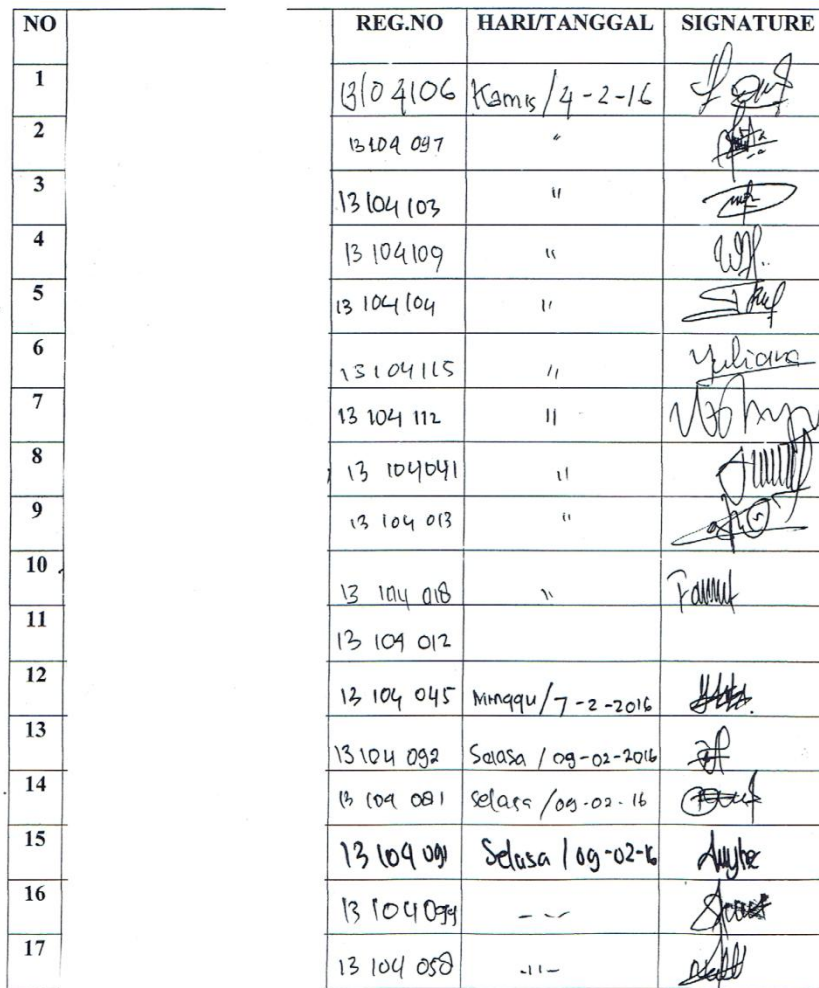 NO REG.NO HARI/TANGGAL SIGNATURE
1 13104106 Kamis/4-2-16
2 13104 097 "
3 13104 103 "
4 13 104109 "
5 13 104104 "
6 13104115 "
7 13 104 112 "
8 13 104041 "
9 13 104 013 "
10 13 104 018 "
11 13 104 012
12 13 104 045 Minggu/7-2-2016
13 13104 092 Selasa / 09-02-2016
14 13 104 081 Selasa /09-02-16
15 13 104 091 Selasa /09-02-16
16 13 104099
17 13 104 058 -11-